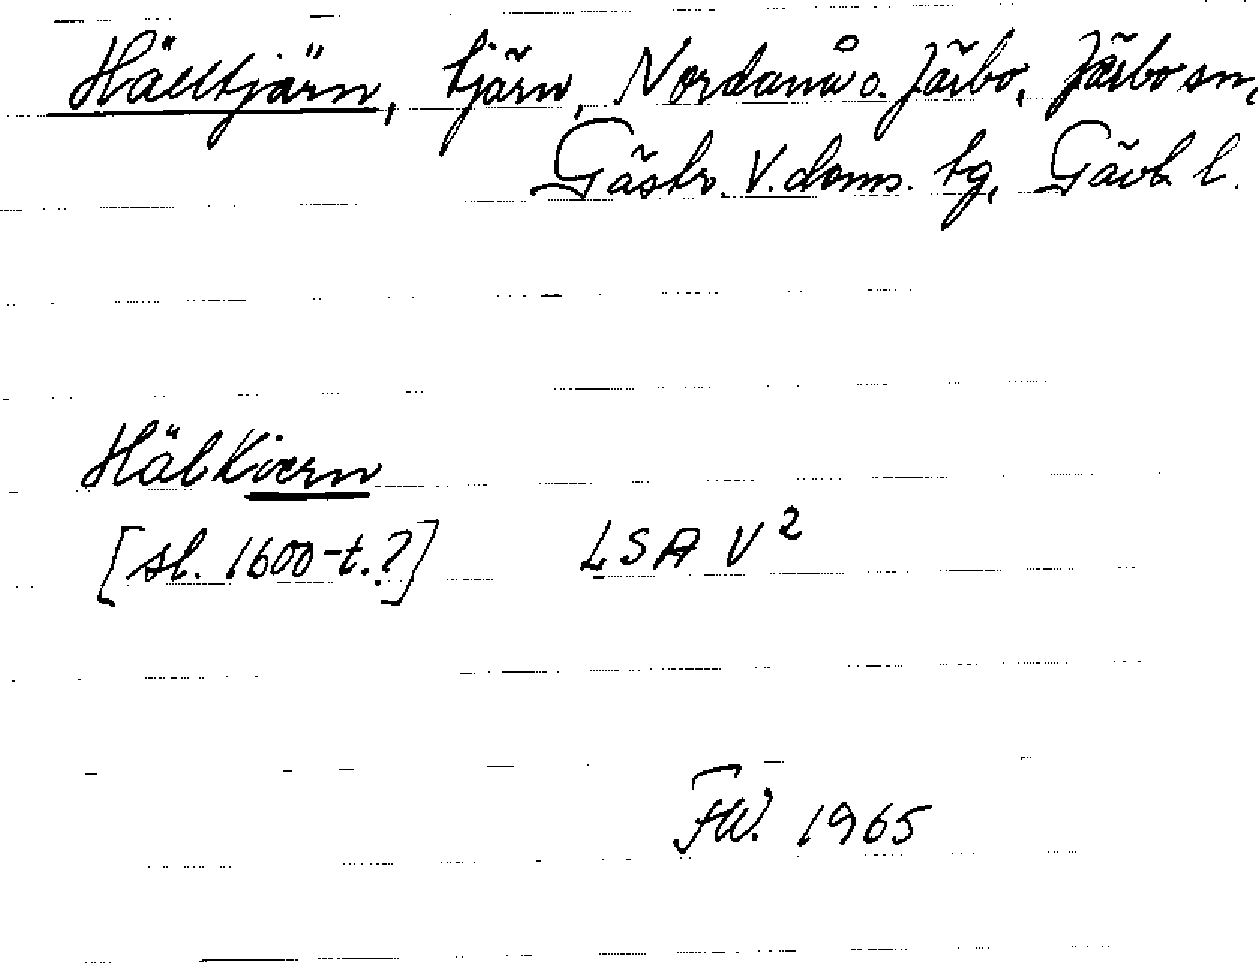 Hälltjärn, tjärn, Nordanå o. Järbo, Järbo sn,
Gästr. V. doms. tg, Gävl. l.
Häl Kiern
[sl. 1600-t.?] LSA V²
FW. 1965